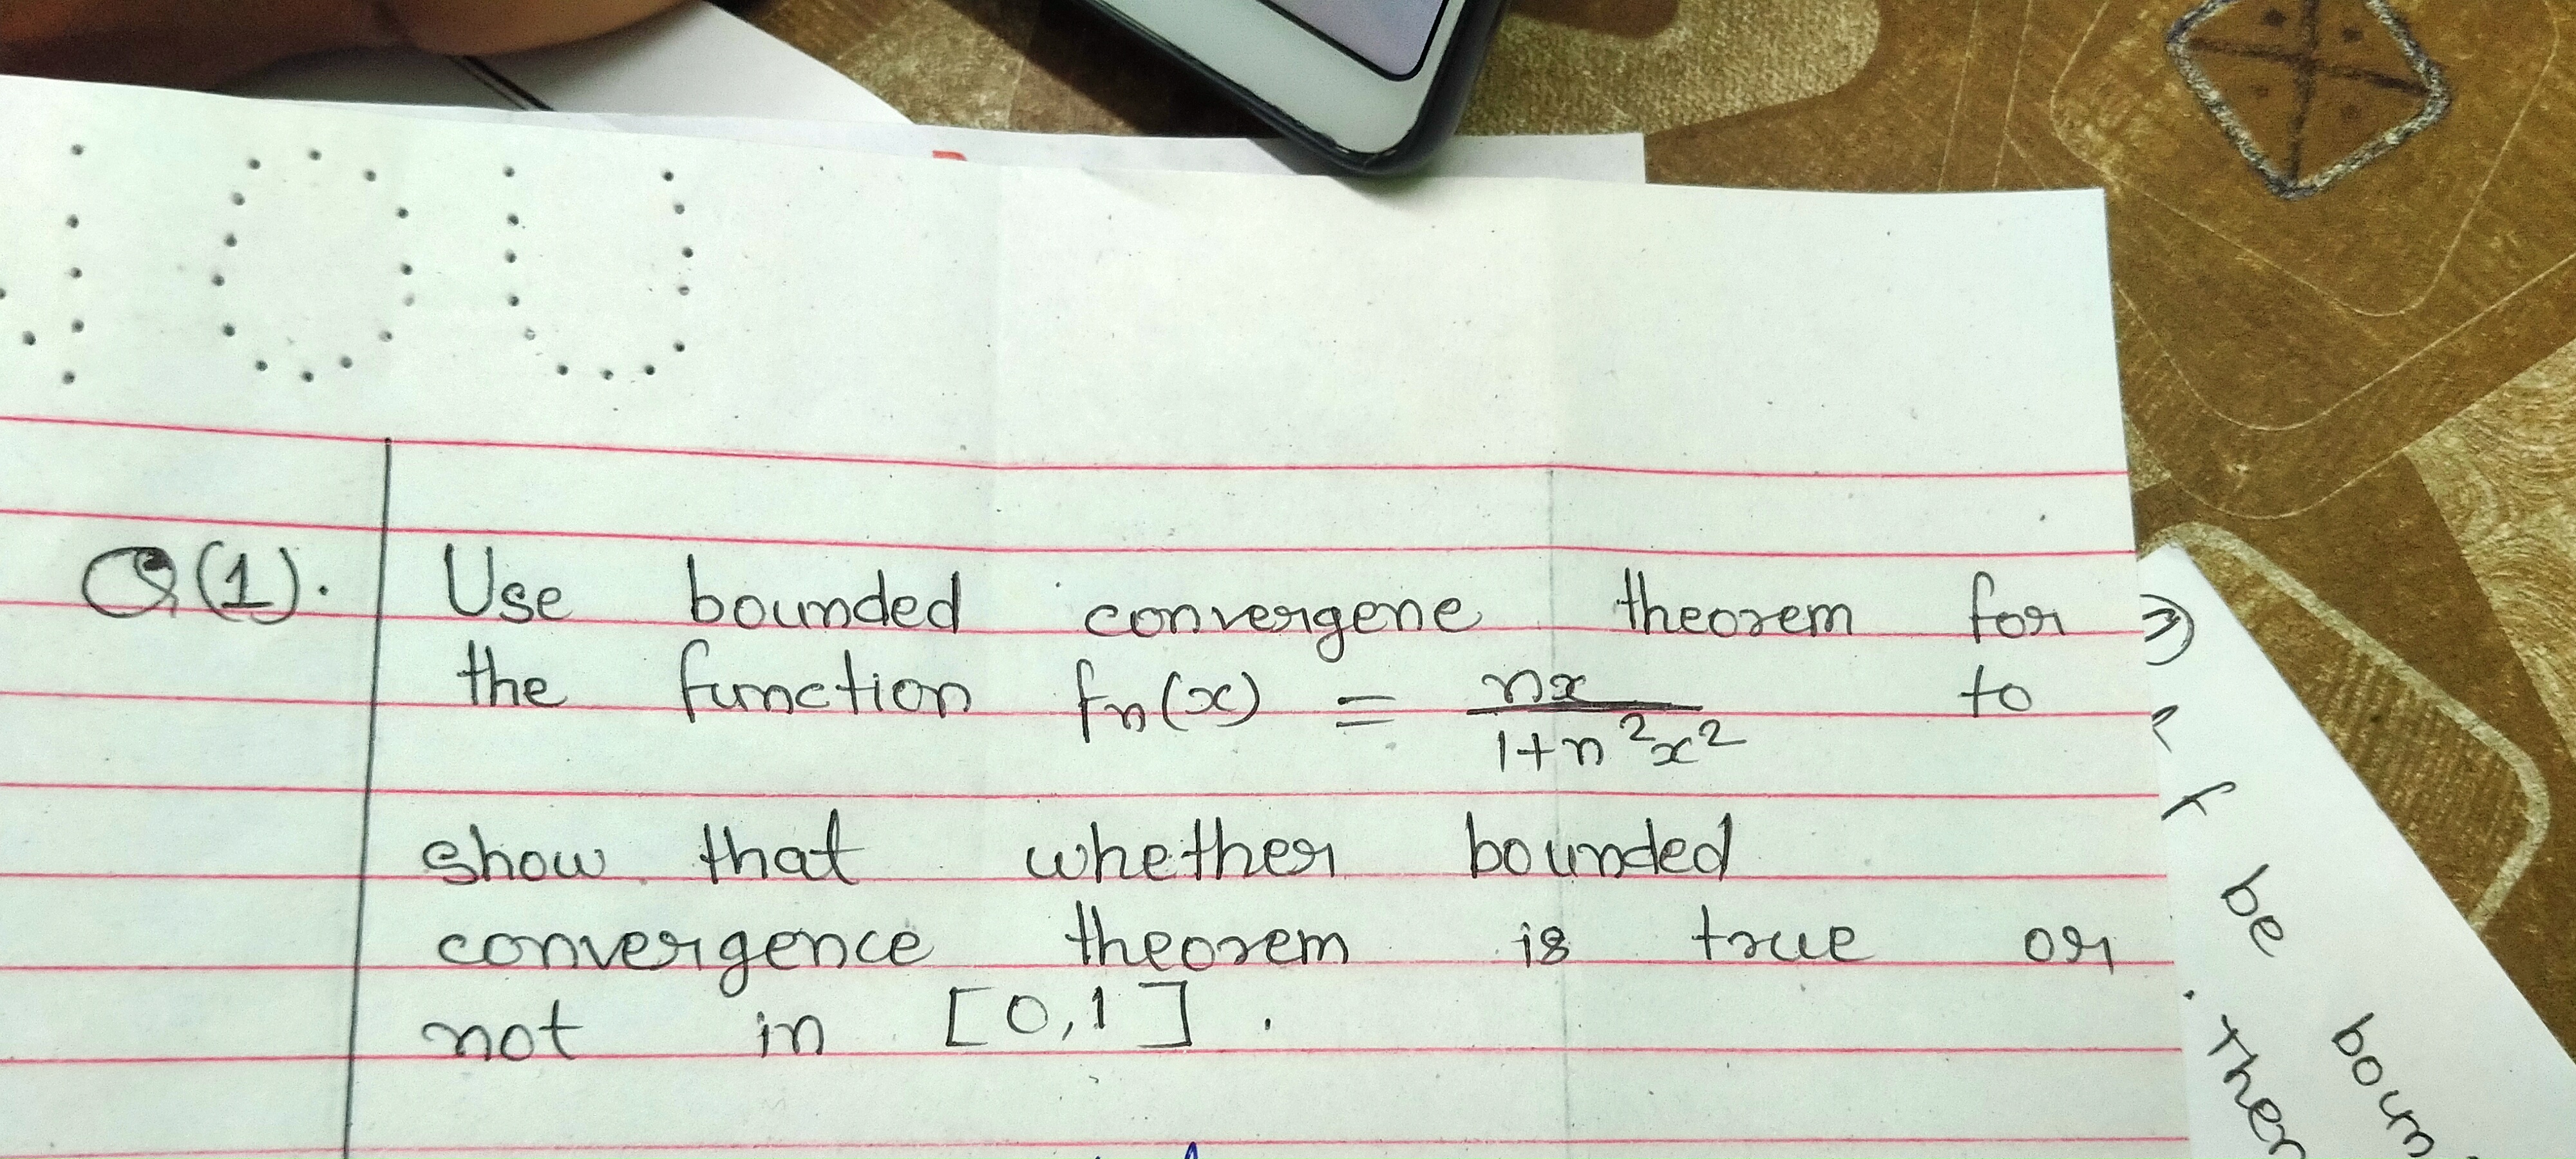 IOU
Q(1). Use bounded convergene theorem for
the function fn(x) = nx / 1+n²x² to
show that whether bounded
convergence theorem is true or
not in [0,1].
be
boun
Then